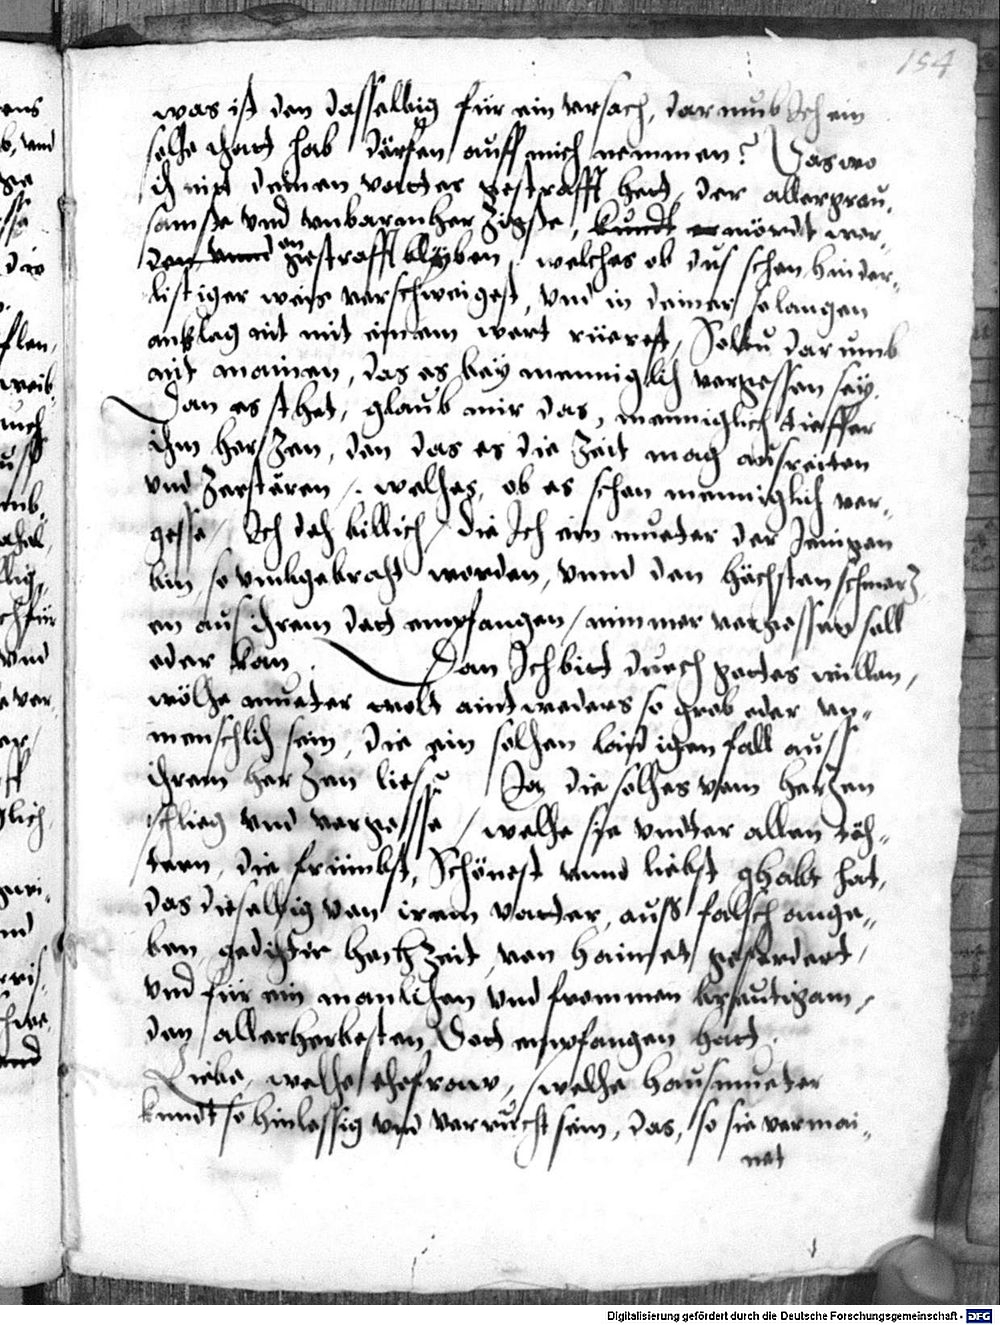 154
was ist den dasselbig für ein ursach, darumb Ich ein
solhe thatt hab dörfen auff mich nemmen? Das wo
ich nit deinen vatter gestrafft hett, der allergrau-
samste vnd vnbarmherzigste, kundt er mördt wor-
den vnnd vngestrafft blyben. welches ob dus schon hinder-
listiger weis verschweigest, vnd in deiner so langen
anklag nit mit einem wort rüerest, Soltu darumb
nit mainen, das es bey menniglich vergessen sey.
Dan es sthet, glaub mir das, menniglich tieffer
ihm herzen, den das es die Zeit mag ausreiten
vnd Zerstüren. welhes, ob es schon menniglich ver-
gesse, Ich doch billich, die Ich ein mueter der Jenigen
bin, so vmbgebraht worden, vnnd den höchsten schmerz-
en aus ihrem dott empfangen, nimmer vergessen soll
oder kan. Dan Ich bitt durch gottes willen,
wölhe mueter wolt aintweders so grob oder vn-
menschlich sein, die ein solhen laidigen fall auss
ihrem herzen liesse Ja die solhes vom herzen
schlieg vnd vergesse, welhe sye vndter allen töch-
tern, die frümbst, Schönest vnnd liebst ghabt hat,
das dieselbig von irem vatter, auss falsch ange-
ben, gedichter hochzeit, von haimet gefordert,
vnd für ein manlichen vnd frommen breutigam,
den allerherbesten Dott empfangen hatt.
Liebe, welhe ehefraw, welhe hausmueter
kundt so hinlessig vnd verrucht sein, das, so sie vermai-
net
Digitalisierung gefördert durch die Deutsche Forschungsgemeinschaft - DFG